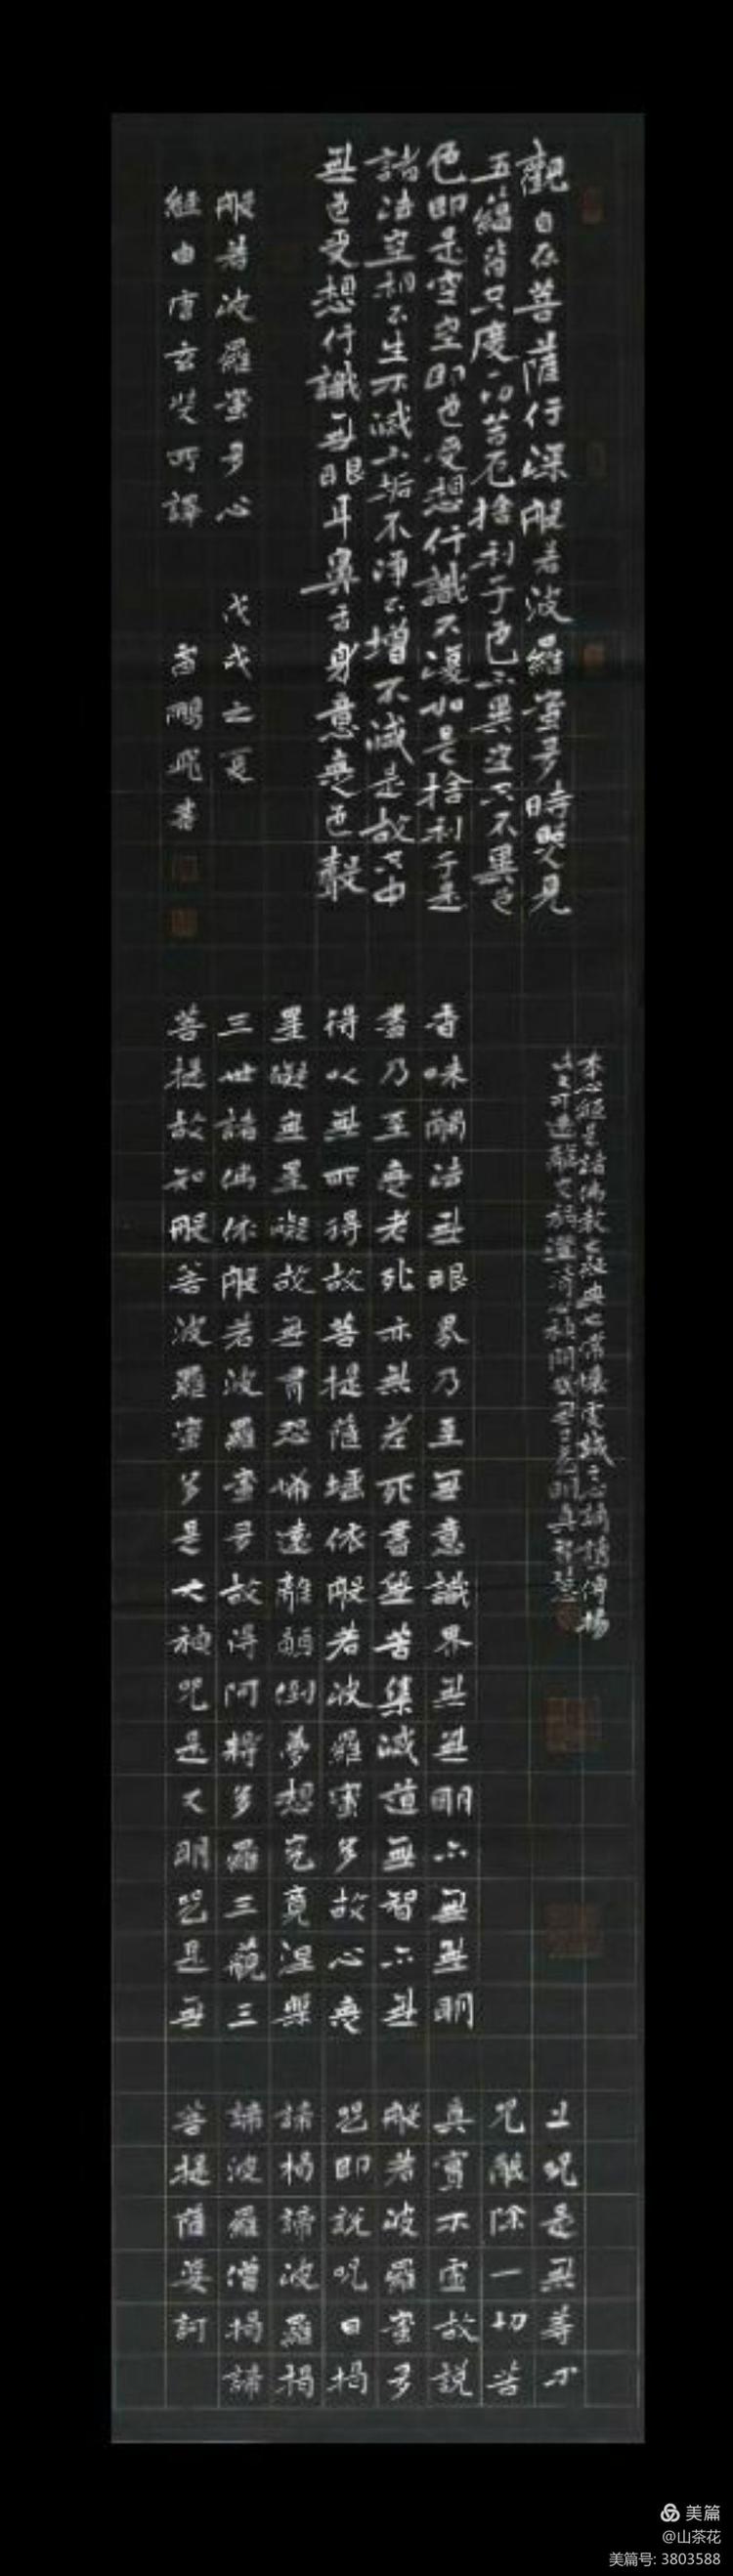 觀自在菩薩行深般若波羅蜜多時照見
五蘊皆空度一切苦厄捨利子色不異空空不異色
色即是空空即色受想行識亦復如是捨利子是
諸法空相不生不滅不垢不淨不增不減是故空中
無色受想行識無眼耳鼻舌身意無色聲
般若波羅蜜多心 戊戌之夏
經由唐玄奘所譯 鵬飛書
本心經 諸佛教 典
香味觸法無眼界乃至無意識界無無明亦無無明
盡乃至無老死亦無老死盡無苦集滅道無智亦無
得以無所得故菩提薩埵依般若波羅蜜多故心無
罣礙無罣礙故無有恐怖遠離顛倒夢想究竟涅槃
三世諸佛依般若波羅蜜多故得阿耨多羅三藐三
菩提故知般若波羅蜜多是大神咒是大明咒是無
上咒是無等等
咒能除一切苦
真實不虛故說
般若波羅蜜多
咒即說咒曰揭
諦揭諦波羅揭
諦波羅僧揭諦
菩提薩婆訶
美篇
@山茶花
美篇号: 3803588